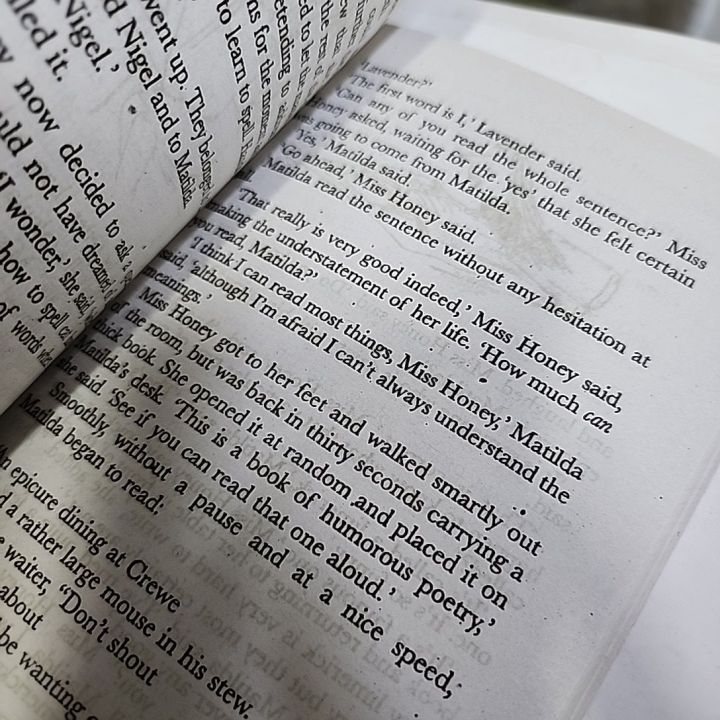 Nigel.'
led it.
went up. They belonged
d Nigel and to Matilda
now decided to ask
uld not have dreamed of
'I wonder,' she said,
how to spell
of words
ew that
the rest of
ed to let the
etending to
ns for the moment
to learn to spell
'Lavender?'
'The first word is I,' Lavender said.
'Can any of you read the whole sentence?' Miss
Honey asked, waiting for the 'yes' that she felt certain
was going to come from Matilda.
'Yes,' Matilda said.
'Go ahead,' Miss Honey said.
Matilda read the sentence without any hesitation at
all.
'That really is very good indeed,' Miss Honey said,
making the understatement of her life. 'How much can
you read, Matilda?'
'I think I can read most things, Miss Honey,' Matilda
said, 'although I'm afraid I can't always understand the
meanings.'
Miss Honey got to her feet and walked smartly out
of the room, but was back in thirty seconds carrying a
thick book. She opened it at random and placed it on
Matilda's desk. 'This is a book of humorous poetry,'
she said. 'See if you can read that one aloud.'
Smoothly, without a pause and at a nice speed,
Matilda began to read:
'An epicure dining at Crewe
d a rather large mouse in his stew.
e waiter, "Don't shout
about
be wanting